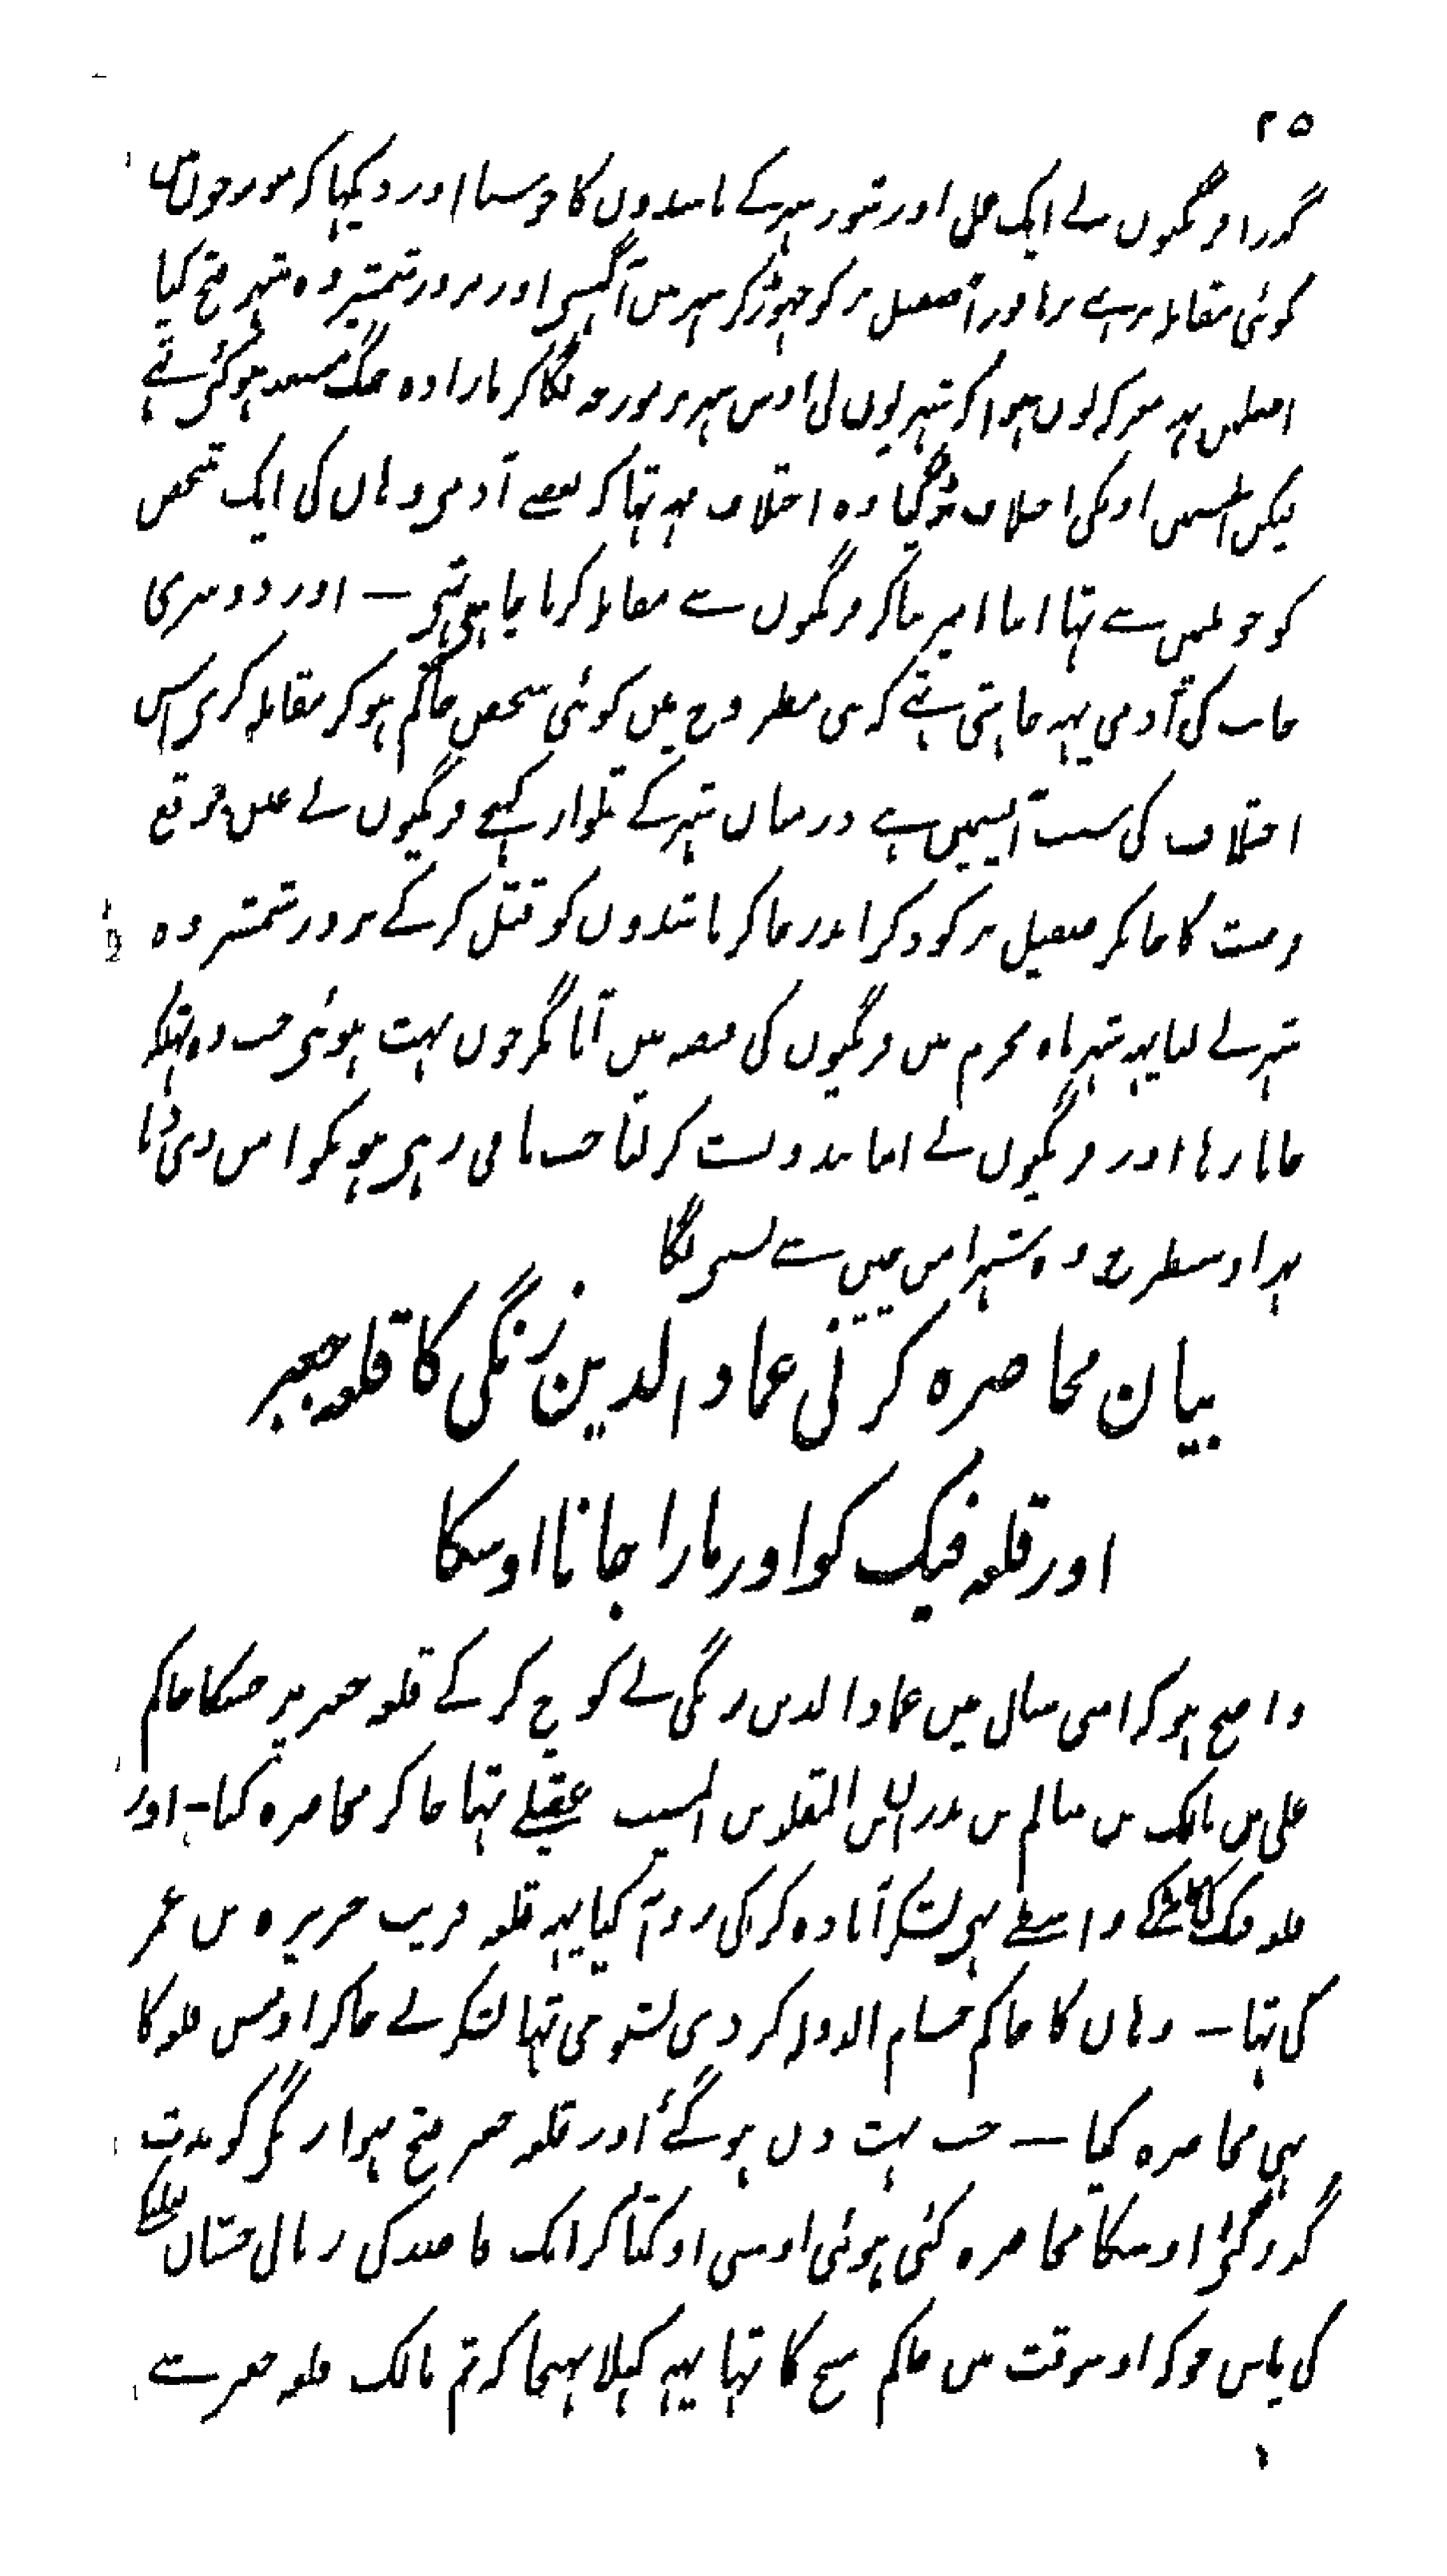 ۲۵
گذرا فرنگیوں نے ایک غل اور شور شہر کے باشندوں کا جو سنا اور دیکھا کہ مورچوں میں
کوئی مقابلہ پر ہے نرہا فوراً فصیل پر کو چہوڑ کر شہر میں آگہسی اور بزور شمشیر وہ شہر فتح کیا
اصلمیں یہہ معرکہ یوں ہوا کہ شہریوں نی اوس شہر پر مورچہ لگا کر بارادہ جنگ مستعد ہو گئے تہے
لیکن اسمیں اونکی اختلاف پڑگیا وہ اختلاف یہہ تہا کہ بعضے آدمی وہاں کی ایک شخص
کو جو ملثمین سے تہا اپنا امیر بنا کر فرنگیوں سے مقابلہ کرنا چاہتی تہی — اور دوسری
جانب کی آدمی یہہ چاہتی تہے کہ بنی مطروح میں کوئی شخص حاکم ہو کر مقابلہ کری اس
اختلاف کی سبب آپسمیں ہے درمیان شہر کے تلوار کہچے فرنگیوں نے عین موقع
فرصت کا جانکر فصیل پر کود کر اندر جا کر باشندوں کو قتل کر کے بزور شمشیر وہ
شہر لے لیا یہہ شہر ماہ محرم میں فرنگیوں کی قبضہ میں آیا مگر خون بہت ہوئی جب وہ تہلکہ
جاتا رہا اور فرنگیوں نے اپنا بندوبست کر لیا جب باقی رہی ہوئیکو امن دی دیا
بہد اوسطرح وہ شہر امن میں سے بسنی لگا
بیان محاصرہ کرنی عماد الدین زنگی کا قلعہ جعبر
اور قلعہ فنیک کو اور مارا جانا اوسکا
واضح ہو کہ اسی سال میں عماد الدین زنگی نے کوچ کر کے قلعہ جعبر پر جسکا حاکم
علی بن مالک بن سالم بن بدران بن المقلد بن المسیب عقیلے تہا جا کر محاصرہ کیا — اور
قلعہ فنک کے واسطے بہی لشکر آمادہ کر کی روانہ کیا یہہ قلعہ قریب جزیرہ بن عمر
کی تہا — وہاں کا حاکم حسام الدولہ کردی بشنوی تہا لشکر نے جا کر اوس قلعہ کا
بہی محاصرہ کیا — جب بہت دن ہو گئے اور قلعہ جعبر فتح نہوا زنگی کو مدت
گذر گئی اوسکا محاصرہ کئی ہوئی اوسی اوکتا کر ایک قاصد کی زبانی حسان
کی پاس جو کہ اوسوقت میں حاکم منبج کا تہا یہہ کہلا بہیجا کہ تم مالک قلعہ جعبر سے